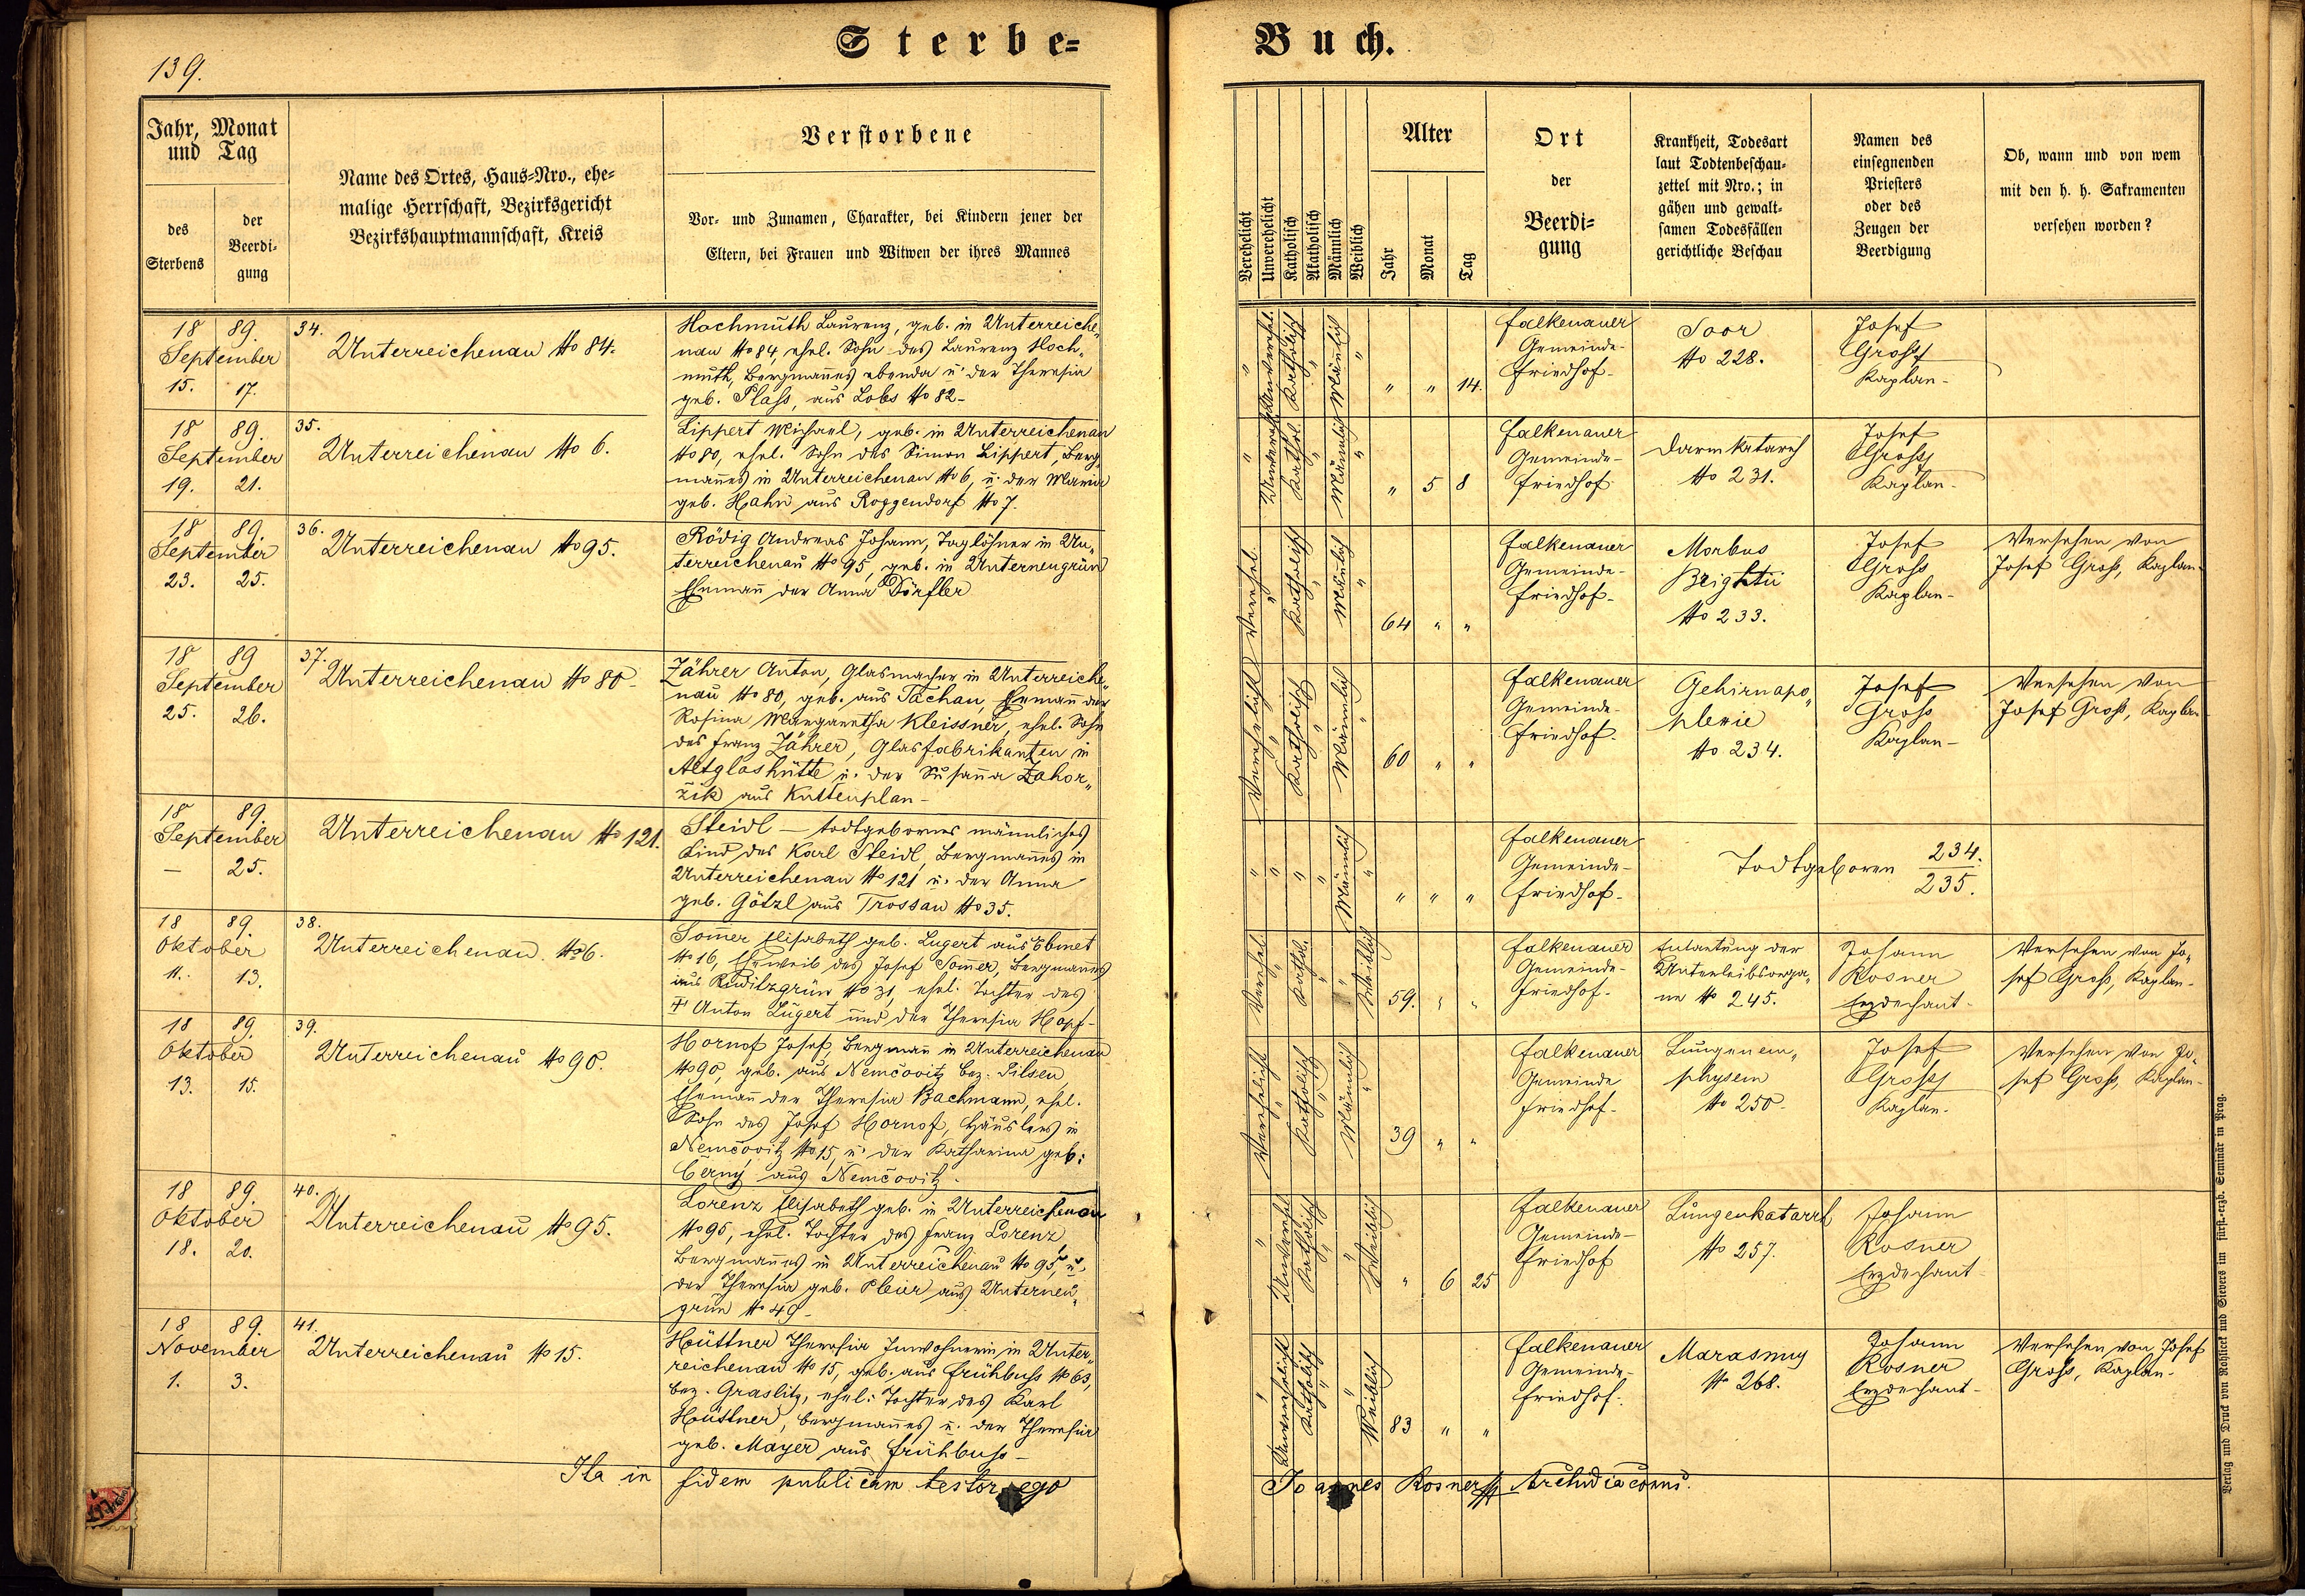 139.
Sterbe=
Buch.
Jahr, Monat
und Tag
des
Sterbens
der
Beerdi-
gung
Name des Ortes, Haus=Nro., ehe=
malige Herrschaft, Bezirksgericht
Bezirkshauptmannschaft, Kreis
Verstorbene
Vor- und Zunamen, Charakter, bei Kindern jener der
Eltern, bei Frauen und Witwen der ihres Mannes
Verehelicht
Unverehelicht
Katholisch
Akatholisch
Männlich
Weiblich
Alter
Jahr
Monat
Tag
Ort
der
Beerdi=
gung
Krankheit, Todesart
laut Todtenbeschau=
zettel mit Nro.; in
gähen und gewalt=
samen Todesfällen
gerichtliche Beschau
Namen des
einsegnenden
Priesters
oder des
Zeugen der
Beerdigung
Ob, wann und von wem
mit den h. h. Sakramenten
versehen worden?
18 89.
September
15. 17.
34.
Unterreichenau No 84.
Hochmuth Laurenz, geb. in Unterreiche„
nau No 84, ehel. Sohn des Laurenz Hoch„
muth, Bergmañes ebenda u. der Theresia
geb. Plass, aus Lobs No 82-
" Unverehel. Katholisch " Männlich "
" " 14.
Falkenauer
Gemeinde-
Friedhof-
Soor
No 228.
Josef
Gross
Kaplan-
18 89.
September
19. 21.
35.
Unterreichenau No 6.
Lippert Michael, geb. in Unterreichenau
No 80, ehel. Sohn des Simon Lippert, Berg„
mañes in Unterreichenau No 6, u. der Maria
geb. Hahn aus Roggendorf No 7.
" Unvereh. Kathol. " Männlich "
" 5 8
Falkenauer
Gemeinde-
Friedhof
Darmkatarrh
No 231.
Josef
Gross
Kaplan-
18 89.
September
23. 25.
36.
Unterreichenau No 95.
Rödig Andreas Johann, Taglöhner in Un„
terreichenau No 95, geb. in Unterneugrün
Ehemañ der Anna Dörfler
Verehel. " Katholisch " Männlich "
64 " "
Falkenauer
Gemeinde-
Friedhof-
Morbus
Brightii
No 233.
Josef
Gross
Kaplan-
Versehen von
Josef Gross, Kaplan-
18 89
September
25. 26.
37.
Unterreichenau No 80-
Zährer Anton, Glasmacher in Unterreiche„
nau No 80, geb. aus Tachau, Ehemañ der
Rosina Margaretha Kleissner, ehel. Sohn
des Franz Zährer, Glasfabrikanten in
Altglashütte u. der Susaña Zahor„
žik aus Kuttenplan-
Verehelicht " Katholisch " Männlich "
60 " "
Falkenauer
Gemeinde-
Friedhof
Gehirnapo„
plexie
No 234.
Josef
Gross
Kaplan-
Versehen von
Josef Gross, Kaplan
18 89.
September
— 25.
Unterreichenau No 121.
Steidl — todtgebornes männliches
Kind des Karl Steidl, Bergmañes in
Unterreichenau No 121 u. der Anna
geb. Götzl aus Trossau No 35.
" " " " Männlich "
" " "
Falkenauer
Gemeinde-
Friedhof-
Todtgeboren 234.
235.
18 89.
Oktober
11. 13.
38.
Unterreichenau. No 6.
Som̃er Elisabeth geb. Lugert aus Ebmet
No 16, Eheweib des Josef Som̃er, Bergmañes
aus Ruditzgrün No 31, ehel. Tochter des
† Anton Lugert und der Theresia Hopf-
Verehel. " Kathol. " " Weiblich
59. " "
Falkenauer
Gemeinde-
Friedhof-
Entartung der
Unterleibsorga„
ne No 245.
Johann
Rosner
Erzdechant-
Versehen von Jo„
sef Gross, Kaplan-
18 89.
Oktober
13. 15.
39.
Unterreichenau No 90.
Hornof Josef, Bergmañ in Unterreichenau
No 90, geb. aus Němčovitz Bez. Pilsen
Ehemañ der Theresia Bachmann, ehel.
Sohn des Josef Hornof, Häuslers in
Němčovitz No 15, u. der Katharina geb:
Černý aus Němčovitz.
Verehelicht " Katholisch " Männlich "
39 " "
Falkenauer
Gemeinde
Friedhof-
Lungenem„
physem
No 250-
Josef
Gross
Kaplan.
Versehen von Jo„
sef Gross, Kaplan-
18 89.
Oktober
18. 20.
40.
Unterreichenau No 95.
Lorenz Elisabeth geb. in Unterreichenau
No 95, ehel. Tochter des Franz Lorenz,
Bergmañes in Unterreichenau No 95, u.
der Theresia geb. Pleier aus Unterneu„
grün No 49-
" Unverehel. Katholisch " " Weiblich
" 6 25
Falkenauer
Gemeinde-
Friedhof
Lungenkatarrh
No 257.
Johann
Rosner
Erzdechant
18 89.
November
1. 3.
41.
Unterreichenau No 15.
Hüttner Theresia Inwohnerin in Unter„
reichenau No 15, geb. aus Frühbuss No 63,
Bez. Graslitz, ehel: Tochter des Karl
Hüttner, Bergmañes u. der Theresia
geb. Mayer aus Frühbuss-
" Unverehelicht Katholisch " " Weiblich
83 " "
Falkenauer
Gemeinde-
Friedhof.
Marasmus
No 268.
Johann
Rosner
Erzdechant-
Versehen von Josef
Gross, Kaplan-
Ita in fidem publicam testor ego
Joannes Rosner Archidiaconus.
Verlag und Druck von Rohlicek und Sievers im fürst.-erzb. Seminär in Prag.